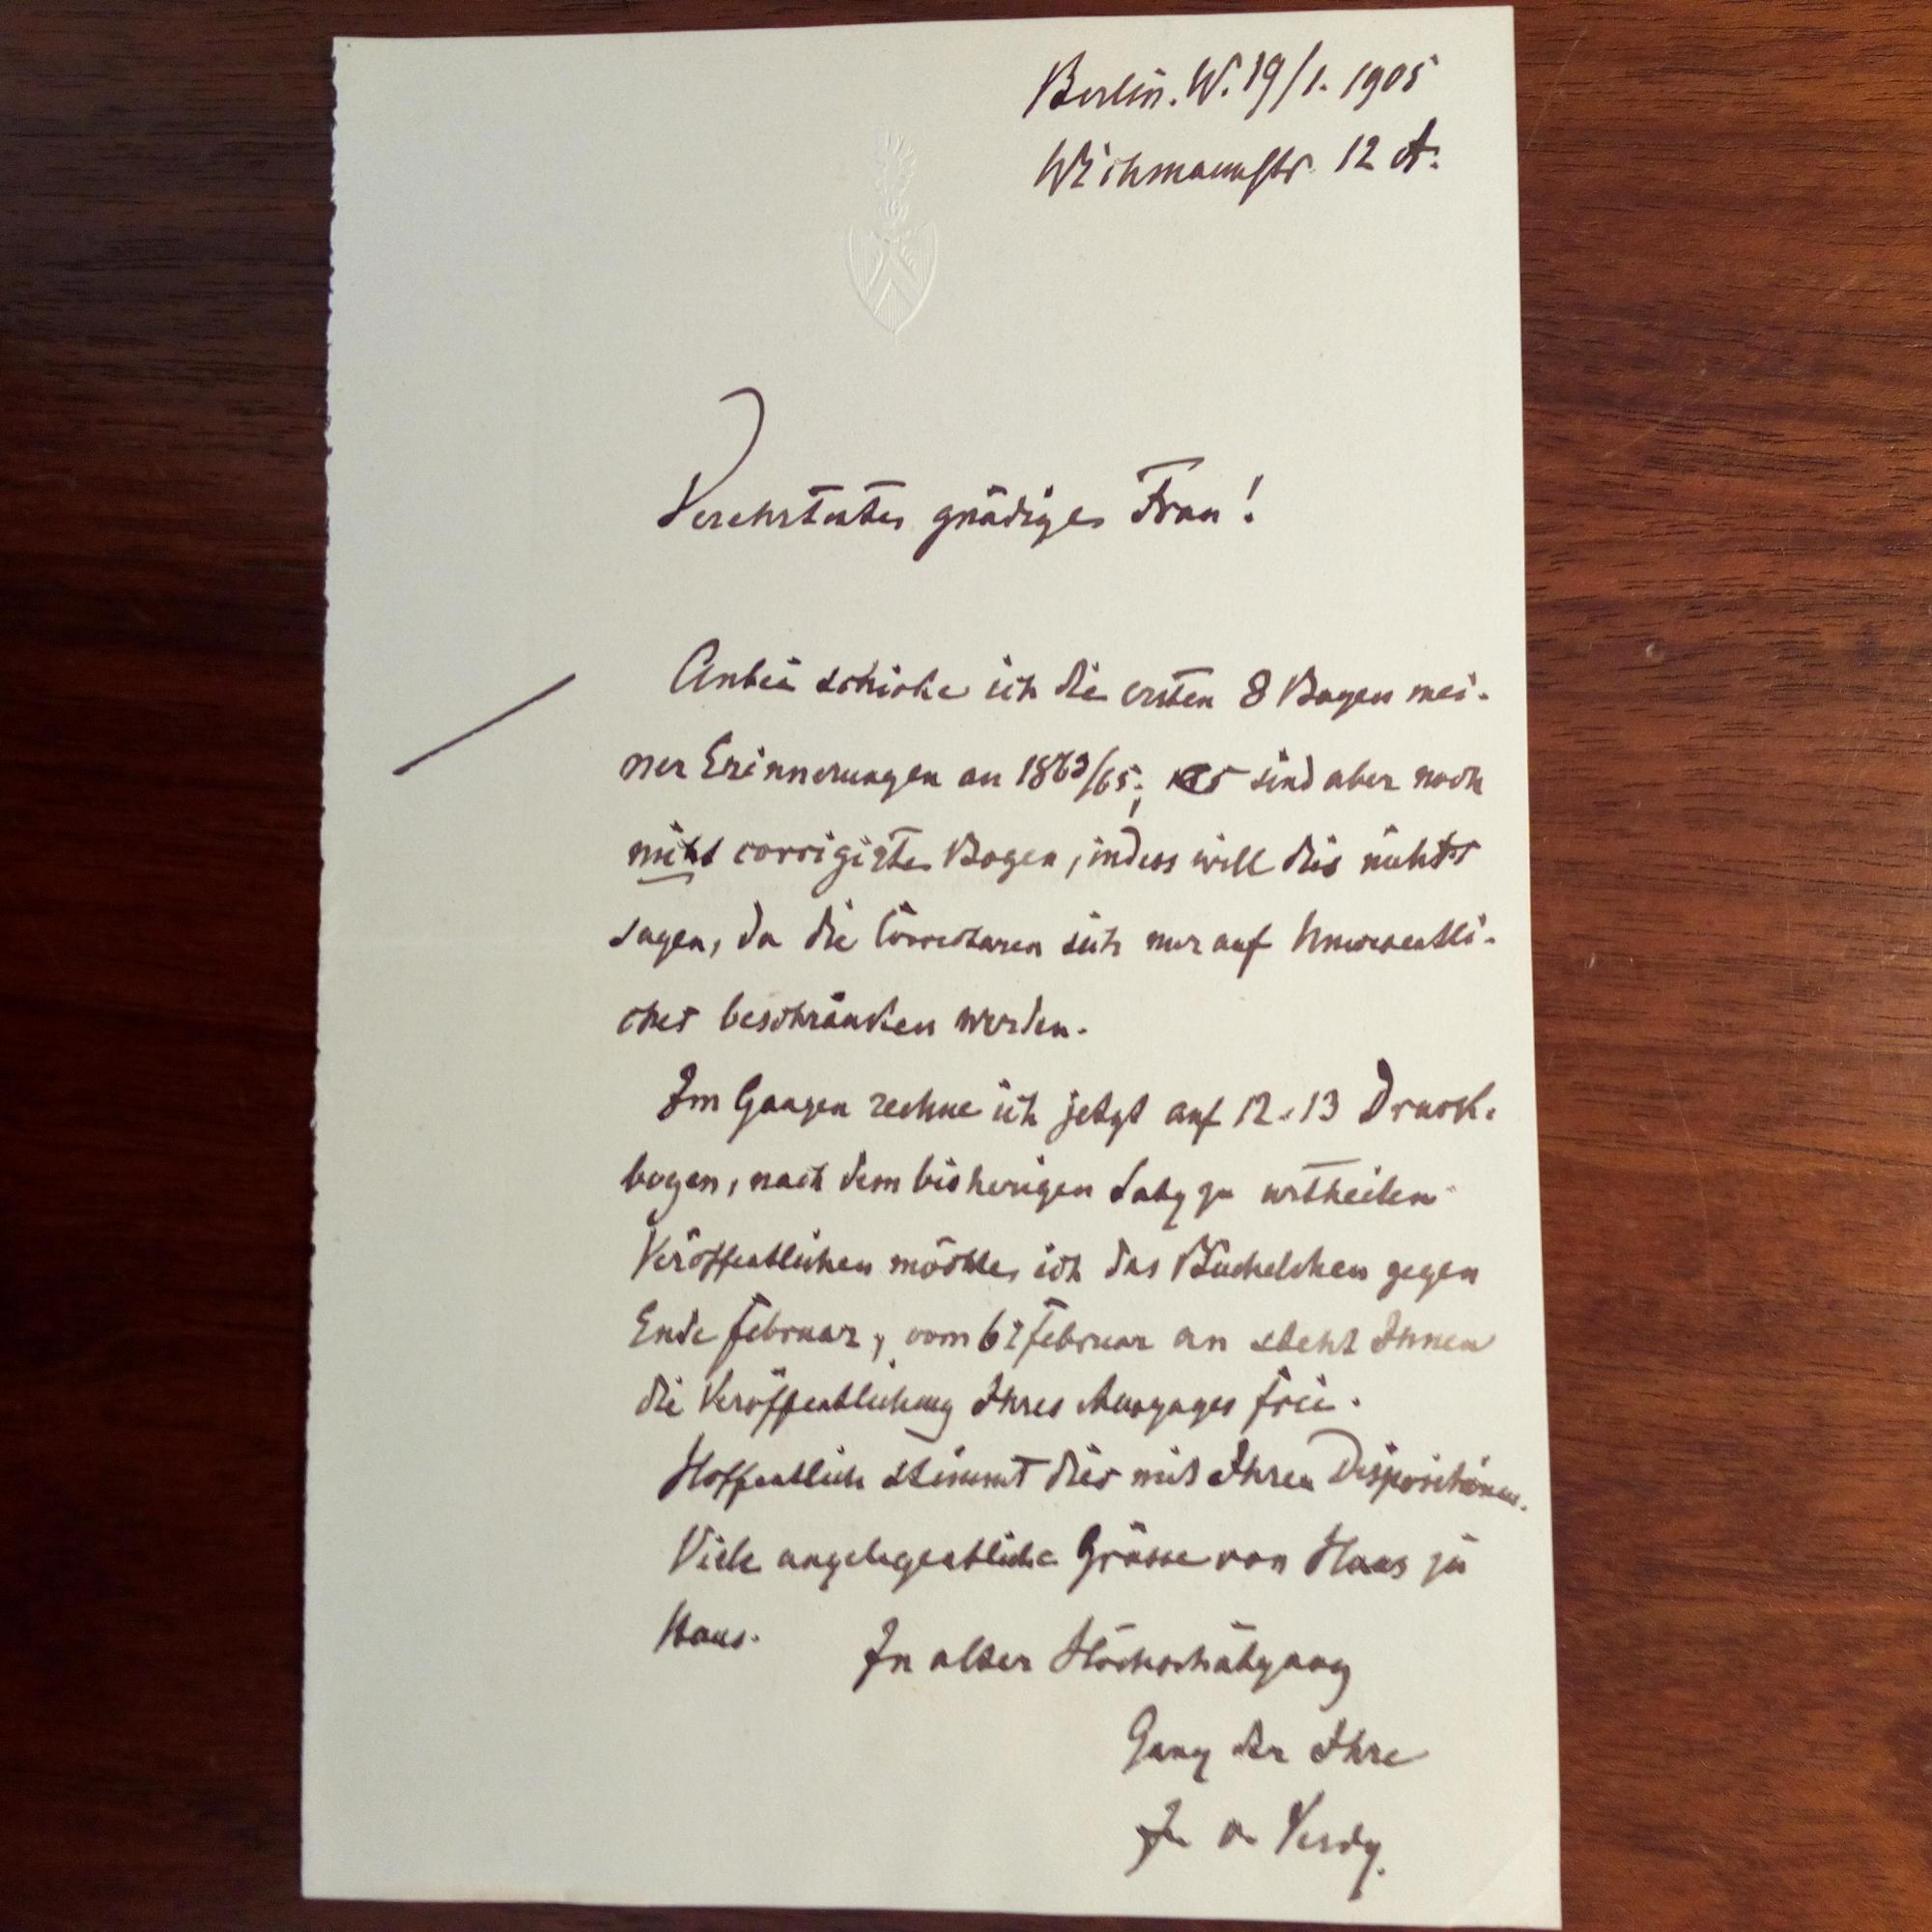 Berlin. W. 19/1. 1905
Wichmannstr. 12 A.
Verehrteste gnädige Frau!
Anbei schicke ich die ersten 8 Bogen mei-
ner Erinnerungen an 1863/65; es sind aber noch
nicht corrigirte Bogen, indess will dies nichts
sagen, da die Correcturen sich nur auf Unwesentli-
ches beschränken werden.
Im Ganzen rechne ich jetzt auf 12-13 Druck-
bogen, nach dem bisherigen Satz zu urtheilen.
Veröffentlichen möchte ich das Büchelchen gegen
Ende Februar, vom 6t Februar an steht Ihnen
die Veröffentlichung Ihres Auszuges frei.
Hoffentlich stimmt dies mit Ihren Dispositionen.
Viele angelegentliche Grüsse von Haus zu
Haus.
In alter Hochschätzung
Ganz der Ihre
J. v. Verdy.